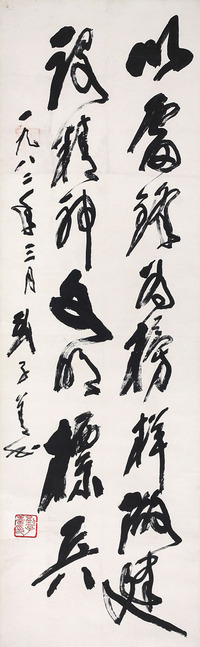 以雷锋为榜样做建
设精神文明标兵
一九八二年三月武中奇书